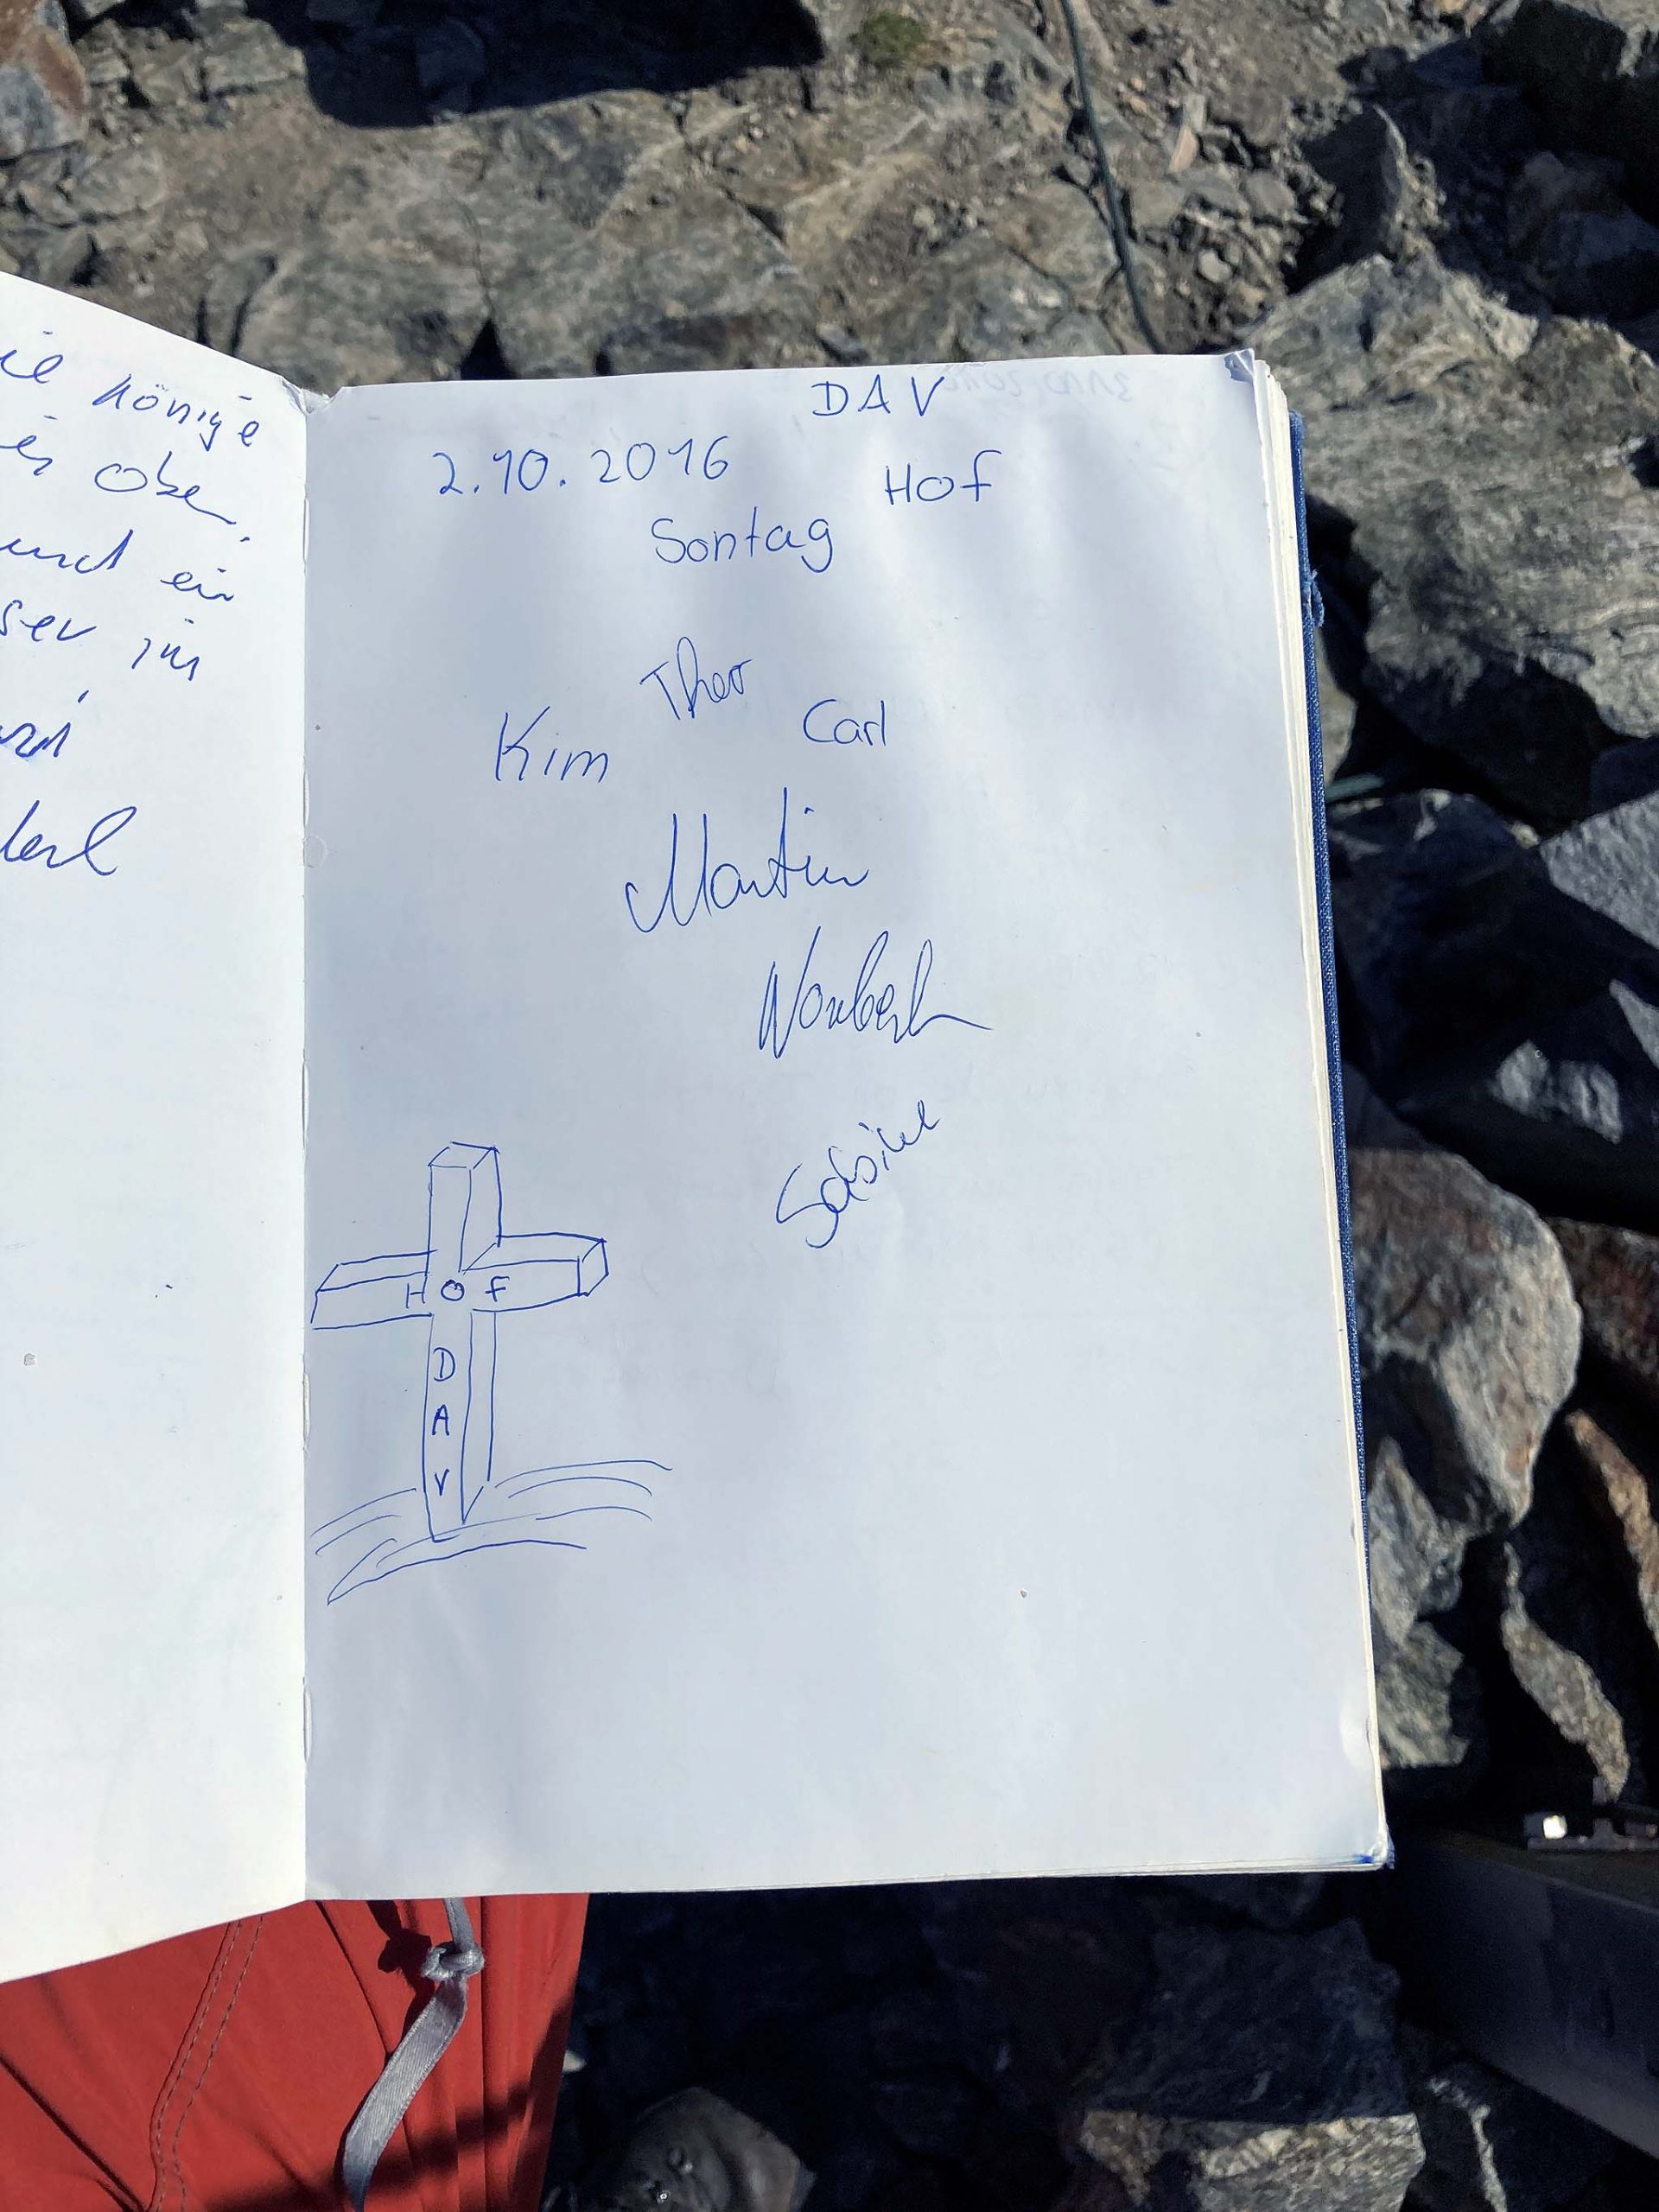 könige
obe
und ein
im
DAV
2.10.2016 Hof
Sontag
Theo
Kim Carl
Martin
Norbert
Sabine
H O F
D
A
V